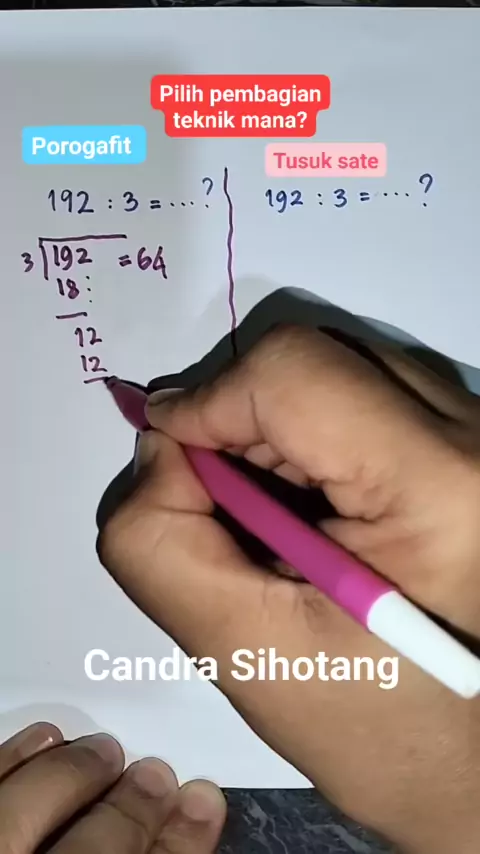 Pilih pembagian
teknik mana?
Porogafit
Tusuk sate
192 : 3 = ....?
192 : 3 = ....?
3 192 = 64
18 :
12
12
Candra Sihotang